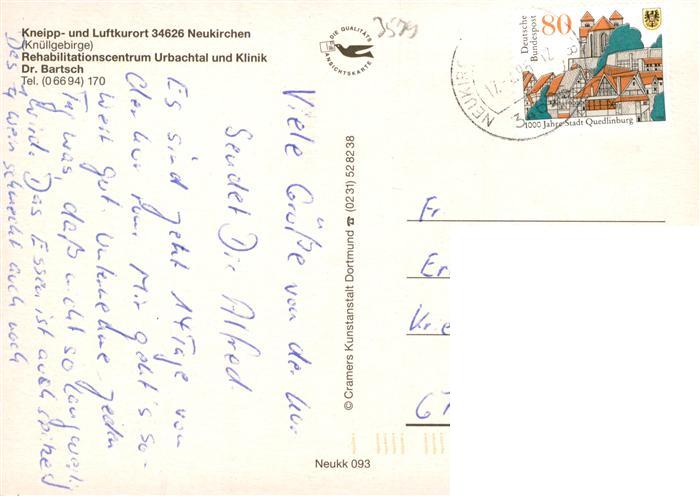 Kneipp- und Luftkurort 34626 Neukirchen
(Knüllgebirge)
Rehabilitationscentrum Urbachtal und Klinik
Dr. Bartsch
Tel. (0 66 94) 170
3579
DIE QUALITÄTS
ANSICHTSKARTE
Deutsche
Bundespost
80
1000 Jahre Stadt Quedlinburg
NEUKIRC
Viele Grüße von der Kur
Sendet Dir Alfred.
Es sind jetzt 14 Tage von
der Kur rum. Mir geht's so-
weit gut. Unternehme jeden
Tag was, daß nicht so langweilig
wird. Das Essen ist auch
Wein schmeckt auch noch
© Cramers Kunstanstalt Dortmund ☎ (0231) 52 82 38
Fr
Er
Krie
61
Neukk 093